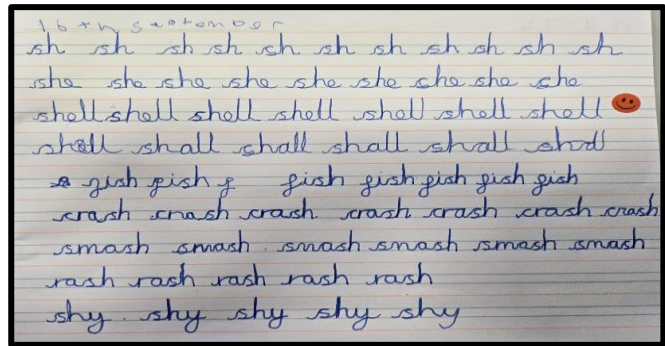 16th September
sh sh sh sh sh sh sh sh sh sh sh
she she she she she she she she she
shell shell shell shell shell shell shell
shall shall shall shall shall shall
fish fish f fish fish fish fish fish
crash crash crash crash crash crash crash
smash smash smash smash smash smash
rash rash rash rash rash
shy shy shy shy shy